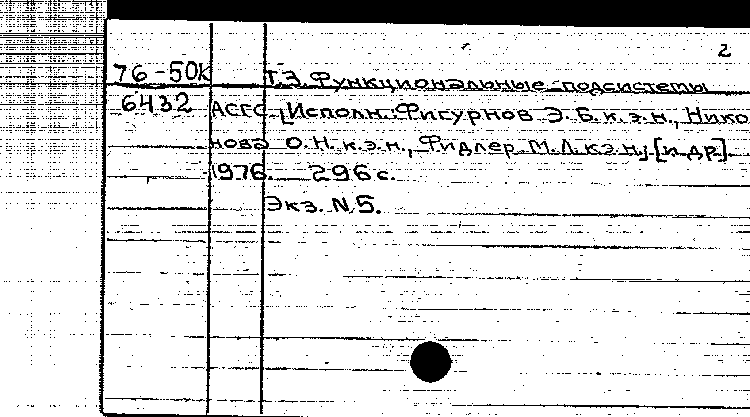 2
76-50к Т.3. Функциональные подсистемы
6432 АСГС. [Исполн. Фигурнов Э.Б. к.э.н., Нико
нова О.Н. к.э.н., Фидлер М.Л. к.э.н., [и др.].
1976. 296 с.
Экз. N 5.